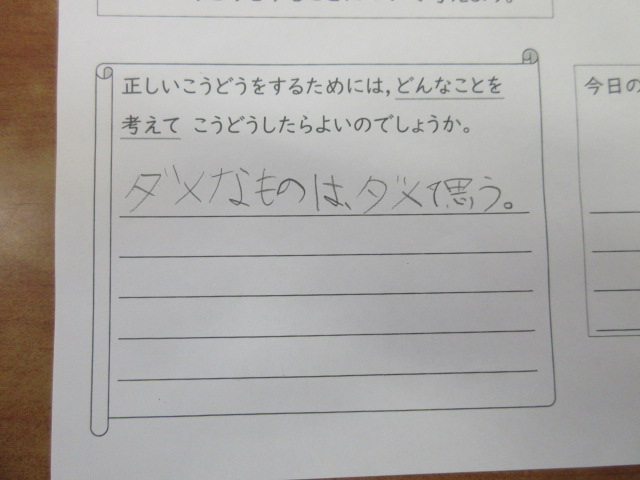 正しいこうどうをするためには,どんなことを
考えて こうどうしたらよいのでしょうか。
ダメなものは、ダメ思う。
今日の